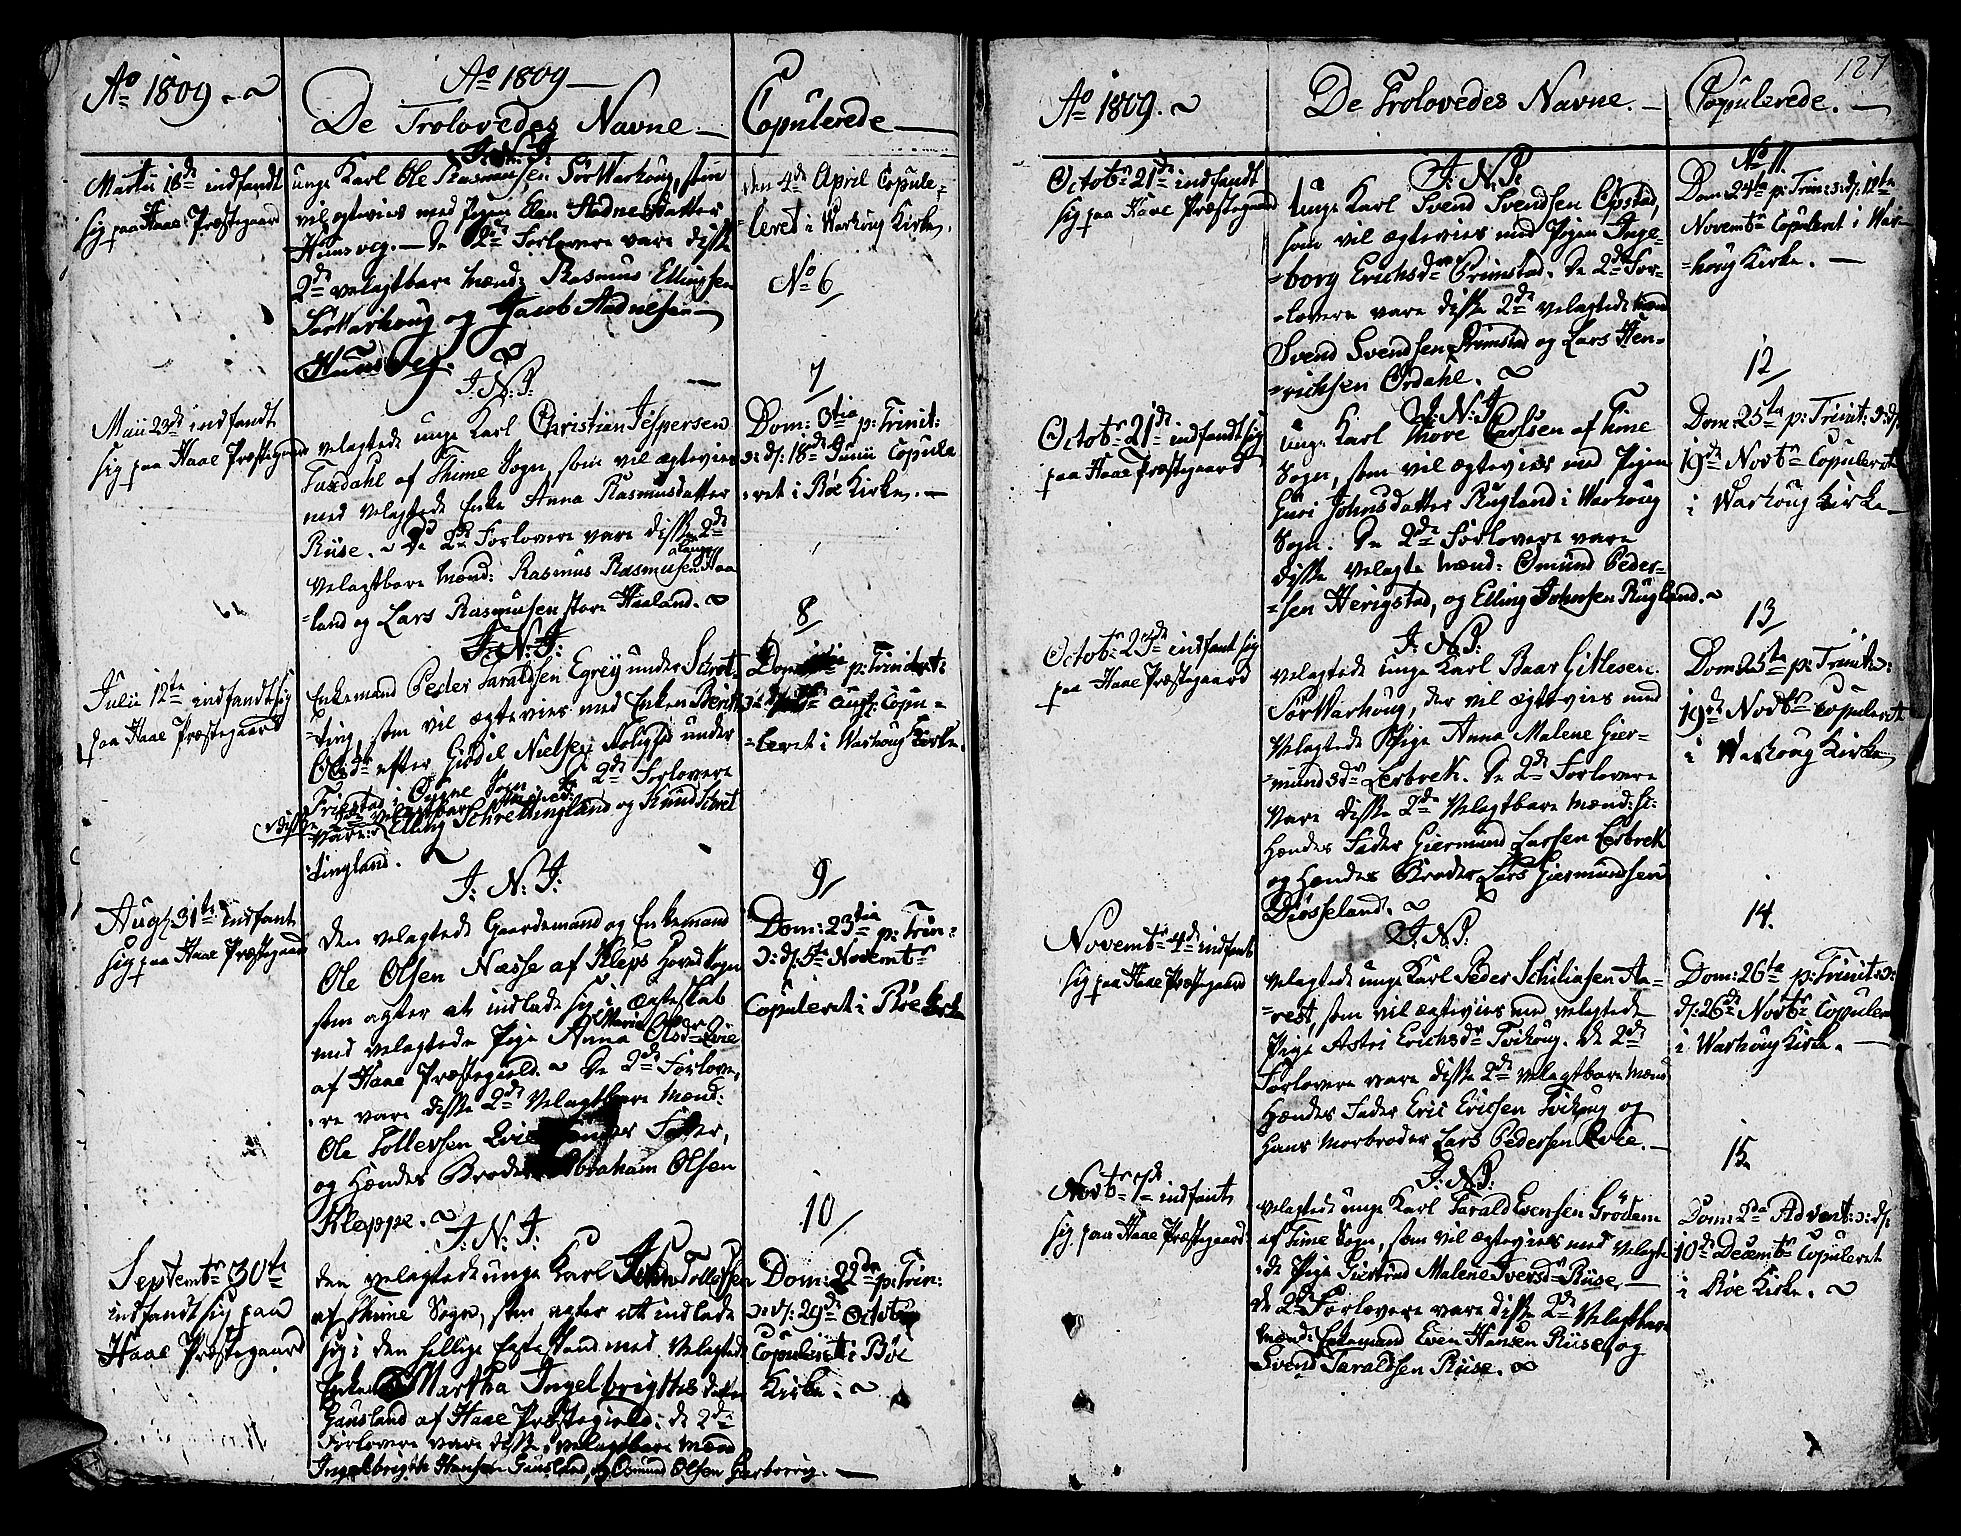 Ao 1809. ~
Ao 1809 —
De Trolovedes Navne —
Copulerede —
J: N: J:
Martii 18de indfandt
sig paa Haae Præstegaard
unge Karl Ole Rasmussen SörWarhoug, som
vil ægtevies med Pigen Elen Aadnesdatter
Hunsveg. — De 2de Forlovere vare disse
2de velagtbare Mænd: Rasmus Ellingsen
SörWarhoug og Jacob Aadnesen —
Huusveg. ~
den 4de April Copule-
-leret i Warhoug Kirke.
No 6
J: N: J:
Maii 23de indfandt
sig paa Haae Præstegaard
velagtede unge Karl Christian Jespersen
Taxdahl af Thime Sogn, som vil ægtevies
med Velagtede Enke Anna Rasmusdatter
Riise. ~ De 2de Forlovere vare disse 2de
velagtbare Mænd: Rasmus Rasmusen Haa
-land og Lars Rasmussen store Haaland. ~
7
Dom: 3tia p: Trinit:
ɔ: d: 18de Junii Copule
-ret i Böe Kirke. —
J: N: J:
Julii 12te indfandt sig
paa Haae Præstegaard
Enkemand Peder Taraldsen Egrey under Schret-
-ting, som vil ægtevies med Enken Berith
Olsdr efter Giödil Nielsen Aaligstd under
Friestad i Ogne Sogn. De 2de Forlovere
disse 2de velagtbare Mænd:
vare: Elling Schrettingland og Knud Schret
tingland. ~
8
Dom: p: Trinitat:
Aug: Copu-
-leret i Warhoug Kirke.
J: N: J:
Aug: 31te indfant
sig paa Haae Præstegaard
den velagtede Gaardemand og Enkemand
Ole Olsen Næsse af Kleps Hoved Sogn
som agter at indlade sig i ægteskab
med velagtede Pige Anna Maria Olsdr Lvie
af Haae Præstegield. ~ De 2de Forlove,
-re vare disse 2de Velagtbare Mænd:
Ole Tollevsen Lvie Hendes Fader,
og Hændes Broder Abraham Olsen
Kleppe. ~
9
Dom: 23tia p: Trin:
ɔ: d: 5te Novembr
Copuleret i Böe Kirke
J: N: J:
Septembr 30te
indfandt sig paa
Haae Præstegaard
den velagtede unge Karl John Tollefsen
af Thime Sogn, som agter at indlade
sig i den hellige Egtestand med Velagtede
Enken Martha Ingelbrigthsdatter
Gausland af Haae Præstegield: de 2de
Forlovere vare disse velagtbare Mænd
Ingelbrigth Hansen Gausland, og Osmund Olsen Garborrig. —
10
Dom: 22da p: Trin:
ɔ: d: 29de Octobr
Copuleret i Böe
Kirke. ~
127
Ao 1809. ~
De Trolovedes Navne. —
Copulerede. —
J: N: J:
Octobr 21de indfandt
sig paa Haae Præstegaard
Unge Karl Svend Svendsen Opstad,
som vil ægtevies med Pigen Inge-
-borg Erichsdr Grimstad. De 2de For-
-lovere vare disse 2de velagtede Mænd
Svend Svendsen Grimstad og Lars Hen-
-richsen Ördahl. ~
No 11.
Dom: 24te p: Trin: ɔ: d: 12te
Novembr Copuleret i War-
-houg Kirke. —
J: N: J:
Octobr 21de indfandt sig
paa Haae Præstegaard
unge Karl Thore Carlsen af Time
Sogn, som vil ægtevies med Pigen
Guri Johnsdatter Rugland i Warhoug
Sogn. De 2de Forlovere vare
disse velagte Mænd: Omund Peder-
-sen Herigstad, og Elling Johnsen Rugland. ~
12
Dom: 25te p: Trinit: ɔ: d:
19de Novbr Copuleret
i Warhoug Kirke —
J: N: J:
Octobr 23de indfant sig
paa Haae Præstegaard
velagtede unge Karl Baar Gitlesen
SörWarhoug, der vil ægtevies med
Velagtede Pige Anna Malene Gier-
-mundsdr Lerbrek. De 2de Forlovere
vare disse 2de Velagtbare Mænd:
Hændes Fader Giermund Larsen Lerbrek
og Hændes Broder Lars Giermundsen
Diösseland. ~
13
Dom: 25te p: Trinit: ɔ:
19de Novbr Copuleret
i Warhoug Kirke
J: N: J:
Novembr 4de indfant
sig paa Haae Præstegaard
velagtede unge Karl Peder Schiliasen Aa-
-rest, som vil ægtevies med velagtede
Pige Astri Erichsdr Tvihoug. de 2de
Forlovere vare disse 2de velagtbare Mænd
Hændes Fader Eric Ericsen Tvihoug og
Hans Morbroder Lars Pedersen Qvie. —
14.
Dom: 26te p: Trinit: ɔ:
d: 26de Novbr Copuleret
i Warhoug Kirke. —
J: N: J:
Novbr 7de indfant
sig paa Haae Præstegaard:
velagtede unge Karl Tarald Evensen Grödem
af Time Sogn, som vil ægtevies med velagte
-de Pige Giertrud Malene Iversdr Riise. —
de 2de Forlovere vare disse 2de Velagtbare
Mænd: Enkemand Even Hansen Riise, og
Svend Taraldsen Riise. ~
15.
Dom: 2da Advent: ɔ: d:
10de Decembr Copuleret
i Böe Kirke. ~